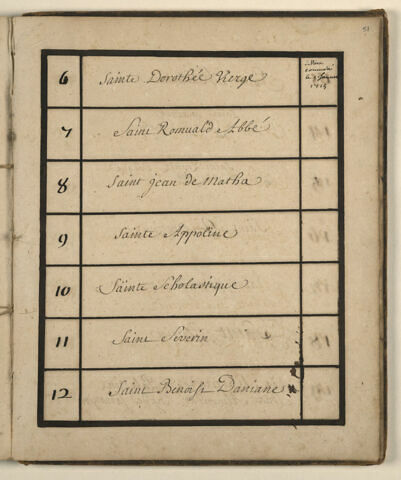 51
6 Sainte Dorothée Vierge
7 Saint Romuald Abbé
8 Saint Jean de Matha
9 Sainte Appoline
10 Sainte Scholastique
11 Saint Severin
12 Saint Benoist Daniane